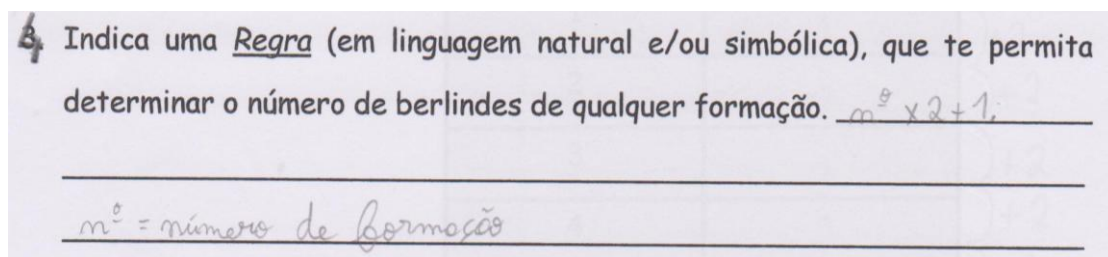 4. Indica uma Regra (em linguagem natural e/ou simbólica), que te permita
determinar o número de berlindes de qualquer formação. nº x 2 + 1.
nº = número de formação